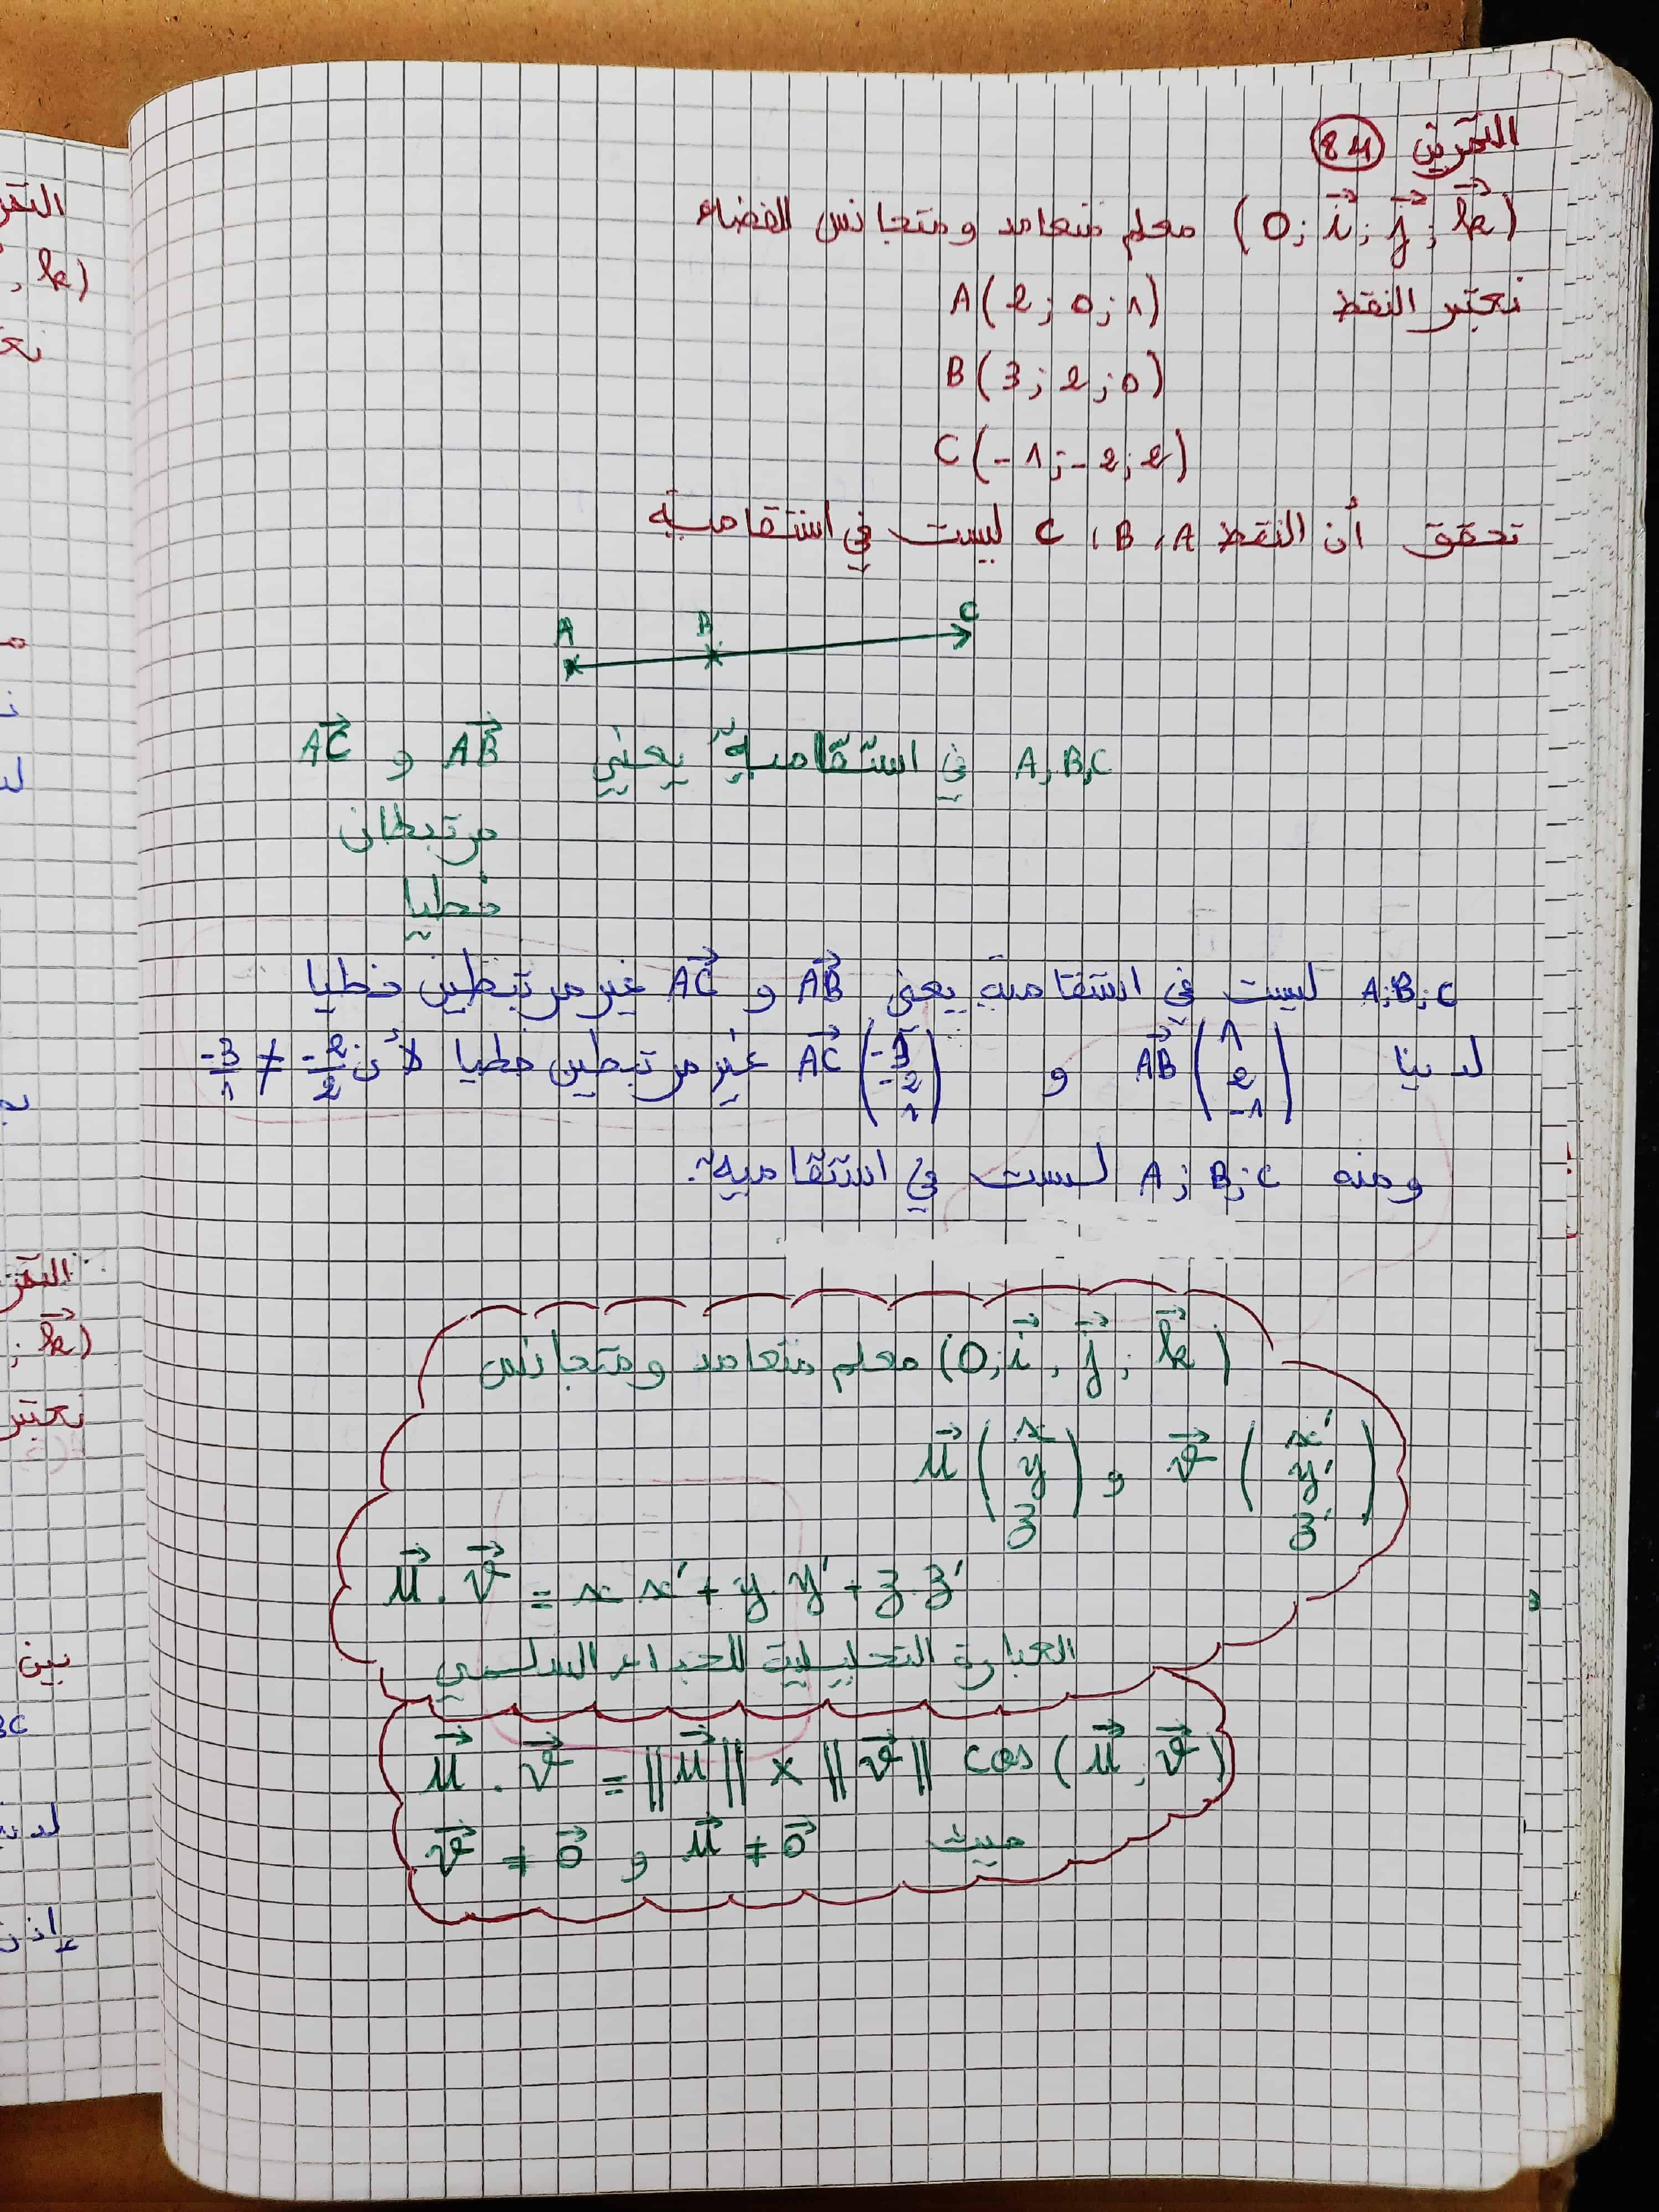 التمرين 84
(O; i⃗; j⃗; k⃗) معلم متعامد ومتجانس للفضاء
نعتبر النقط A(2; 0; 1)
B(3; 2; 0)
C(-1; -2; 2)
تحقق أن النقط A، B، C ليست في استقامية
A B C
A, B, C في استقامية يعني AB⃗ و AC⃗
مرتبطان
خطيا
A; B; C ليست في استقامية يعني AB⃗ و AC⃗ غير مرتبطين خطيا
لدينا AB⃗ (1 2 -1) و AC⃗ (-3 -2 1) غير مرتبطين خطيا لأن -2/2 ≠ -3/1
ومنه A; B; C لست في استقامية.
(O; i⃗, j⃗; k⃗) معلم متعامد ومتجانس
u⃗ (x y z) و v⃗ (x' y' z')
u⃗ . v⃗ = x x' + y. y' + z. z'
العبارة التحليلية للجداء السلمي
u⃗ . v⃗ = ||u⃗|| × ||v⃗|| cos (u⃗, v⃗)
حيث u⃗ ≠ 0⃗ و v⃗ ≠ 0⃗
التمر
, k)
نعت
التمر
; k⃗)
نعتبر
بين
BC
إذن